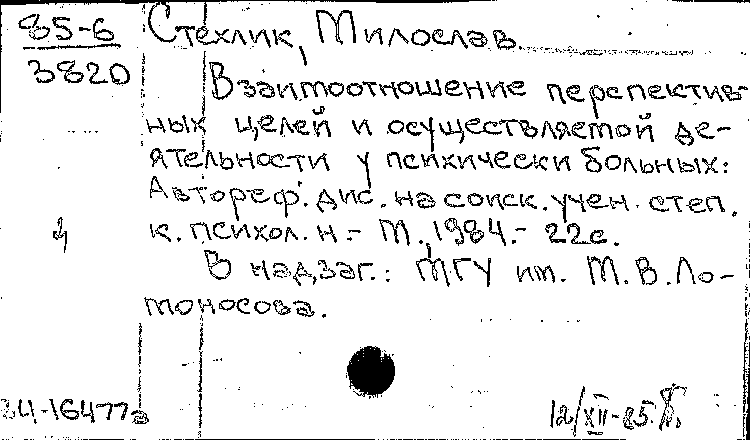 85-6
3820
Стехлик, Милослав
Взаимоотношение перспектив-
ных целей и осуществляемой де-
ятельности у психически больных:
Автореф. дис. на соиск. учен. степ.
к. психол. н. - М., 1984. - 22с.
В надзаг.: МГУ им. М.В.Ло-
моносова.
84-16477а
12/XII-85.